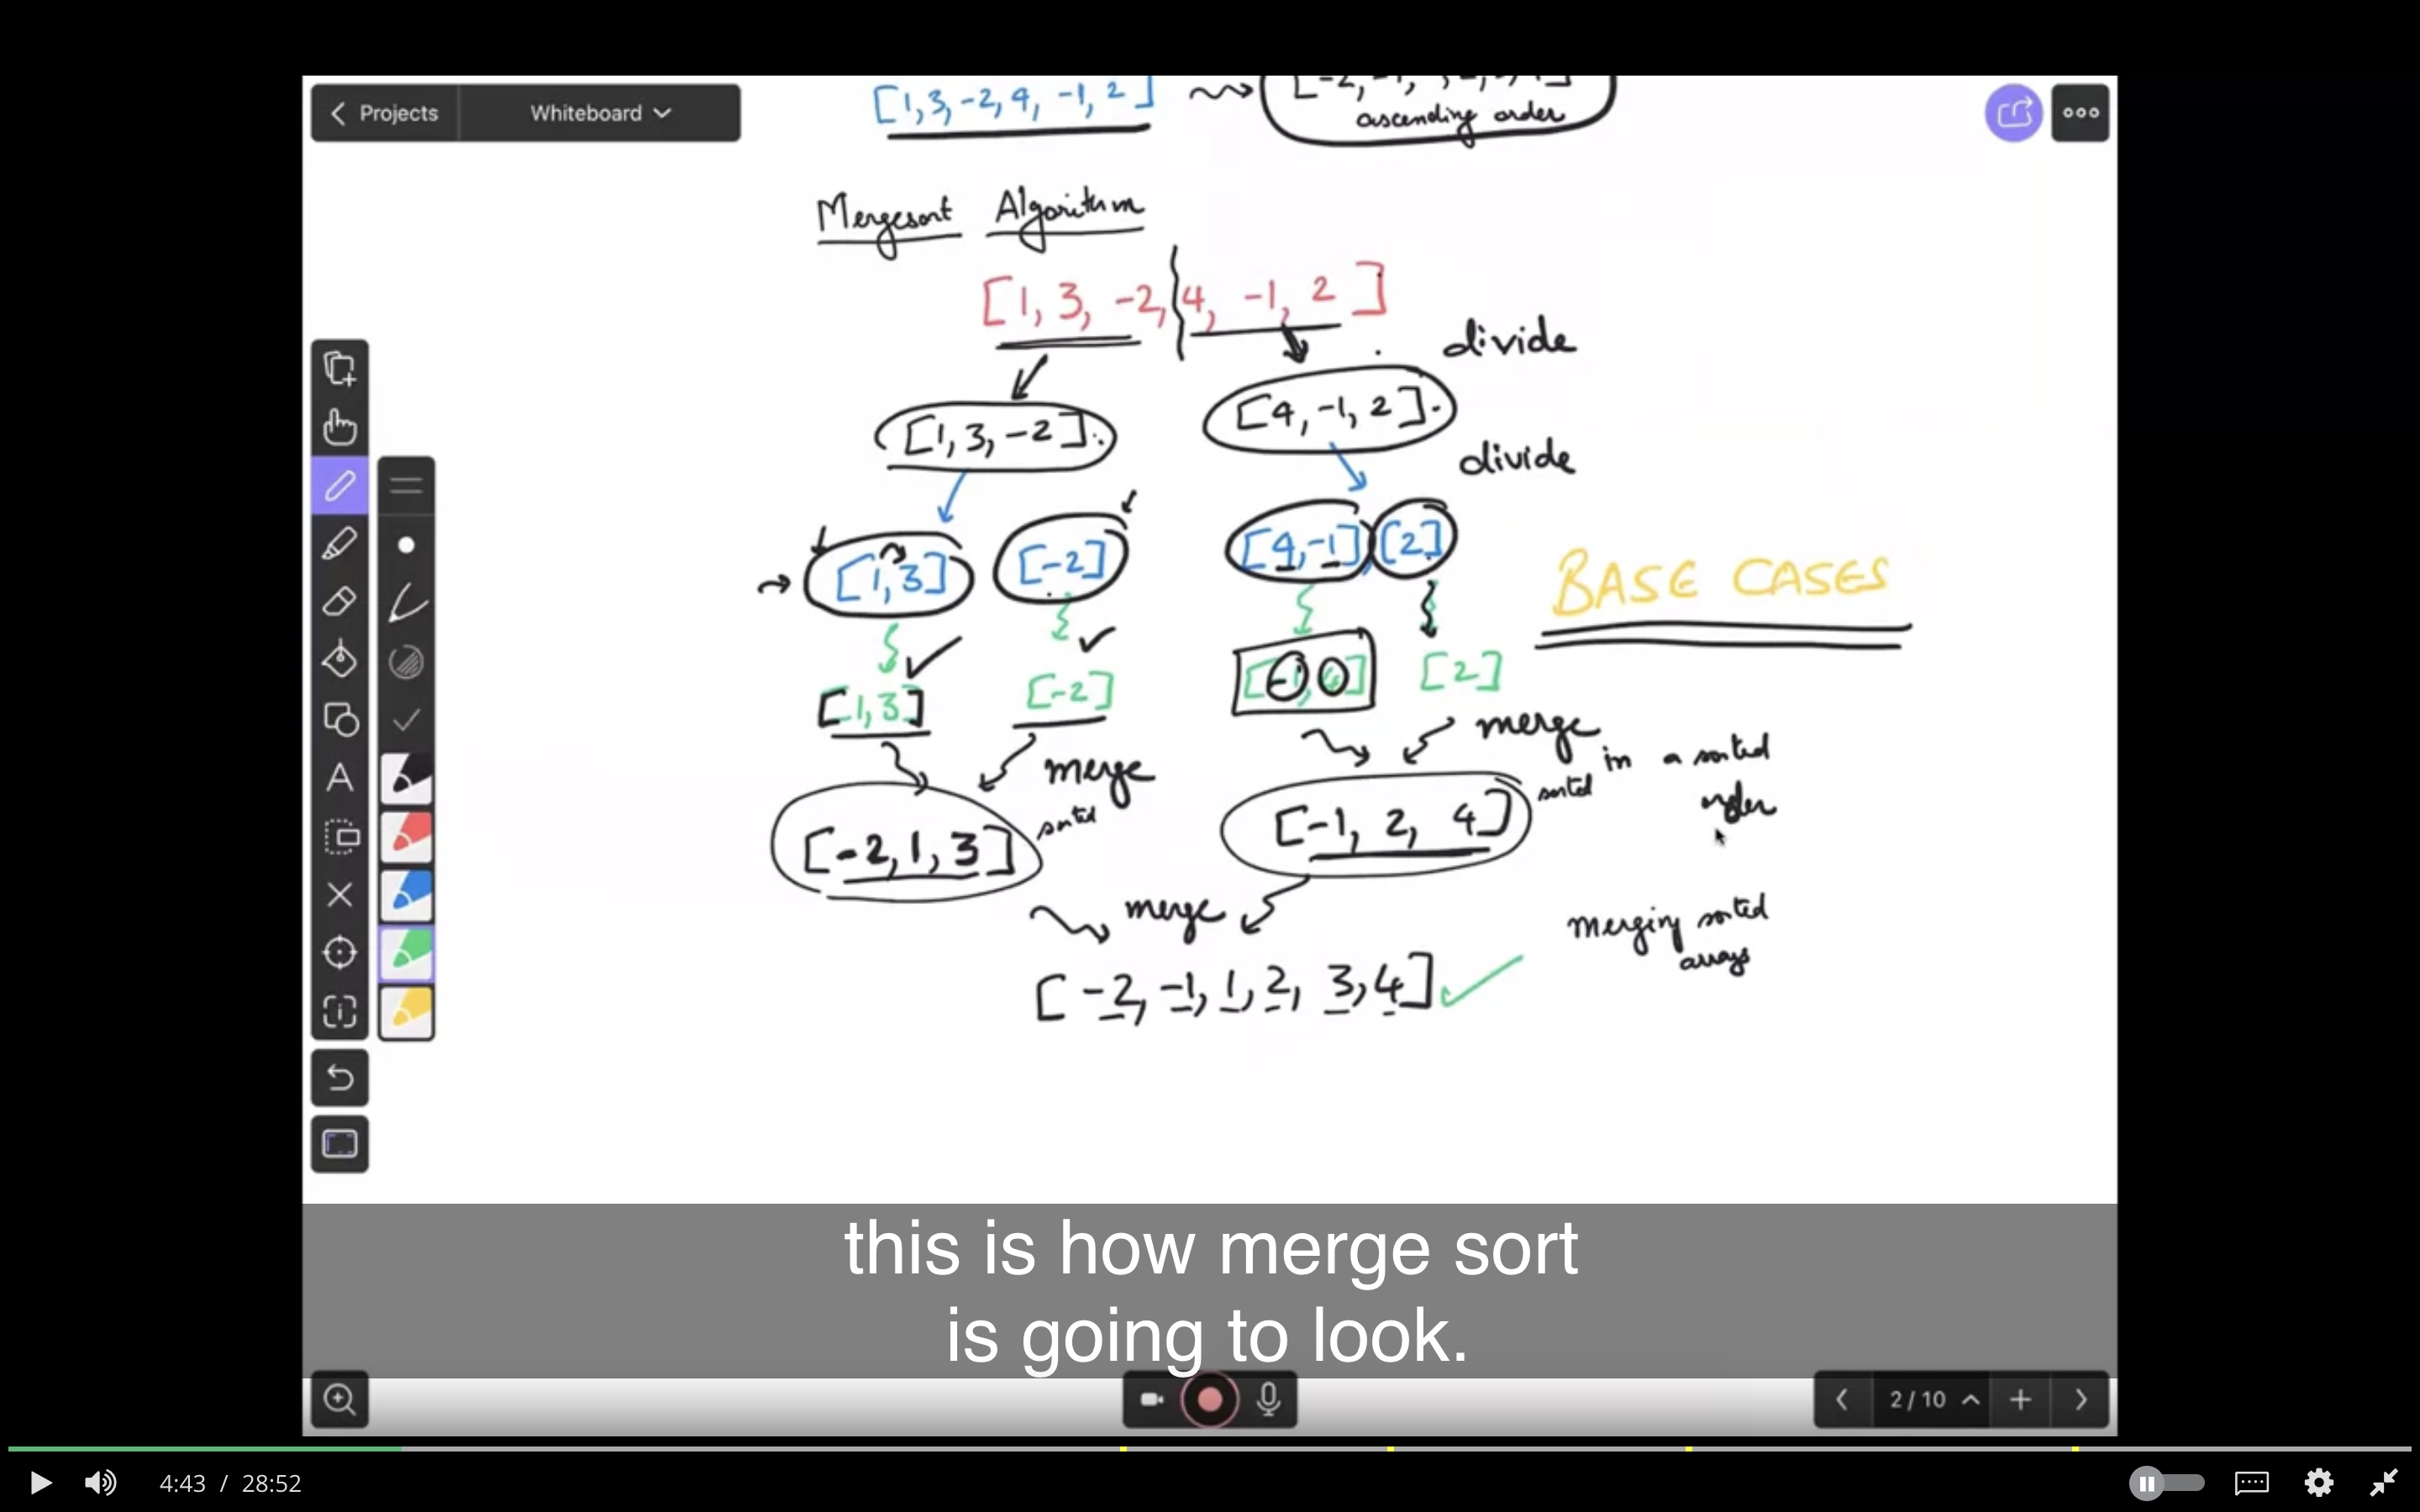 Projects Whiteboard
[1, 3, -2, 4, -1, 2]
ascending order
Mergesort Algorithm
[1, 3, -2, 4, -1, 2]
divide
[1, 3, -2] [4, -1, 2]
divide
[1, 3] [-2] [4, -1], [2]
BASE CASES
[1, 3] [-2] [-1, ] [2]
merge merge
in a sorted
order
sorted sorted
[-2, 1, 3] [-1, 2, 4]
merge
merging sorted
arrays
[-2, -1, 1, 2, 3, 4]
this is how merge sort
is going to look.
2 / 10
4:43 / 28:52